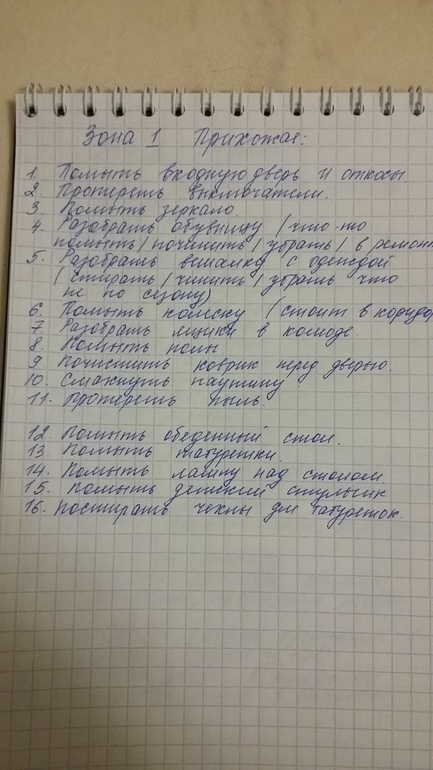 Зона 1 Прихожая:
1. Помыть входную дверь и откосы
2. Протереть выключатели.
3 Помыть зеркало
4. Разобрать обувницу (что-то
помыть / починить / убрать / в ремонт
5. Разобрать вешалку с одеждой
(стирать / чинить / убрать что
не по сезону)
6. Помыть коляску (стоит в коридор
7. Разобрать ящики в комоде.
8 Помыть полы
9 Почистить коврик перед дверью.
10. Смахнуть паутину
11. Протереть пыль.
12 Помыть обеденный стол.
13. Помыть табуретки.
14. Помыть лампу над столом.
15. Помыть детский стульчик
16. Постирать чехлы для табуреток.